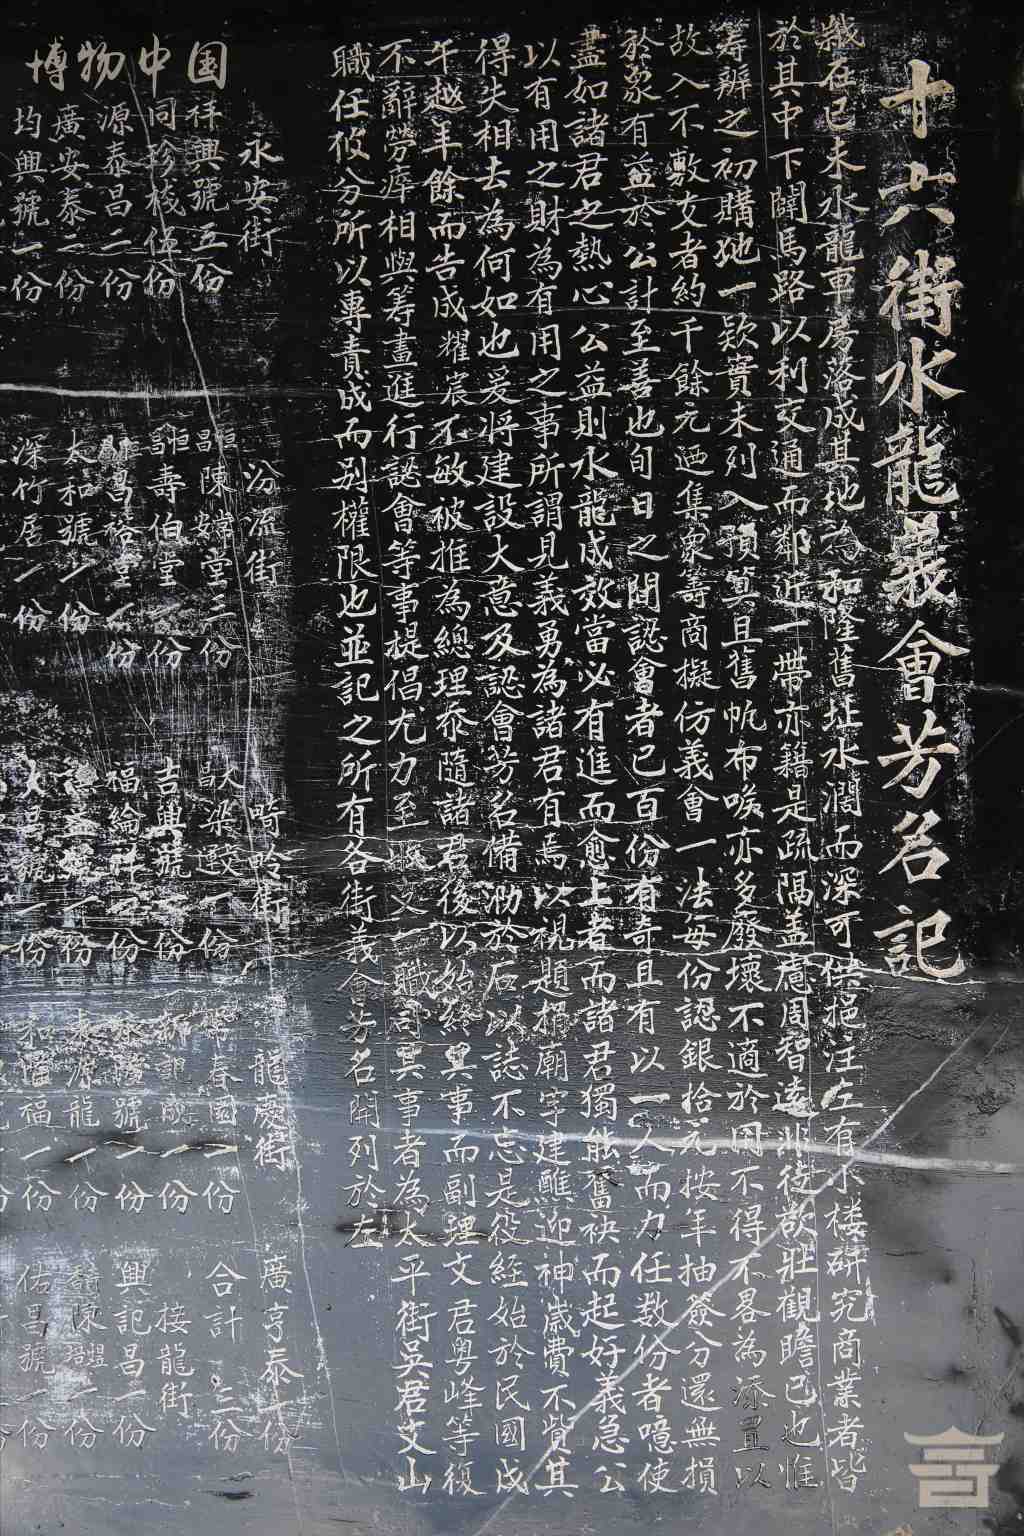 十六街水龍義會芳名記
歲在己未水龍車房落成其地為和隆舊址水濶而深可供挹注左有水楼研究商業者皆
於其中下闢馬路以利交通而鄰近一帶亦籍是疏隔盖慮周智遠非徒欲壯觀瞻已也惟
籌辦之初購地一欵實未列入預算且舊帆布喉亦多廢壞不適於用不得不畧為添置以
故入不敷支者約千餘元廼集衆籌商擬仿義會一法每份認銀拾元按年抽簽分還無損
於家有益於公計至善也旬日之間認會者已百份有奇且有以一人而力任数份者噫使
盡如諸君之熱心公益則水龍成效當必有進而愈上者而諸君獨能奮袂而起好義急公
以有用之財為有用之事所謂見義勇為諸君有焉以視題捐廟宇建醮迎神歲費不貲其
得失相去為何如也爰将建設大意及認會芳名備泐於石以誌不忘是役經始於民國戊
午越年餘而告成耀宸不敏被推為總理忝隨諸君後以始終其事而副理文君粵峰等復
不辭勞瘁相與籌畫進行認會等事提倡尤力至收支一職司其事者為太平街吳君艾山
職任攸分所以專責成而别權限也並記之所有各街義會芳名開列於左
永安街 汾流街 畸岭街 龍慶街 廣亨泰一份
祥興號五份 陳嫜堂三份 梁 一份 常春園一份 合計 三份
同珍棧伍份 壽伯堂一份 吉興號一份 新記成一份 接龍街
源泰昌二份 昌裕堂一份 福綸祥一份 泰隆號一份 興記昌一份
廣安泰二份 太和號一份 一份 泰源龍一份 陳 一份
均興號一份 深竹居一份 昌號一份 和隆福一份 佑昌號一份
博物中国